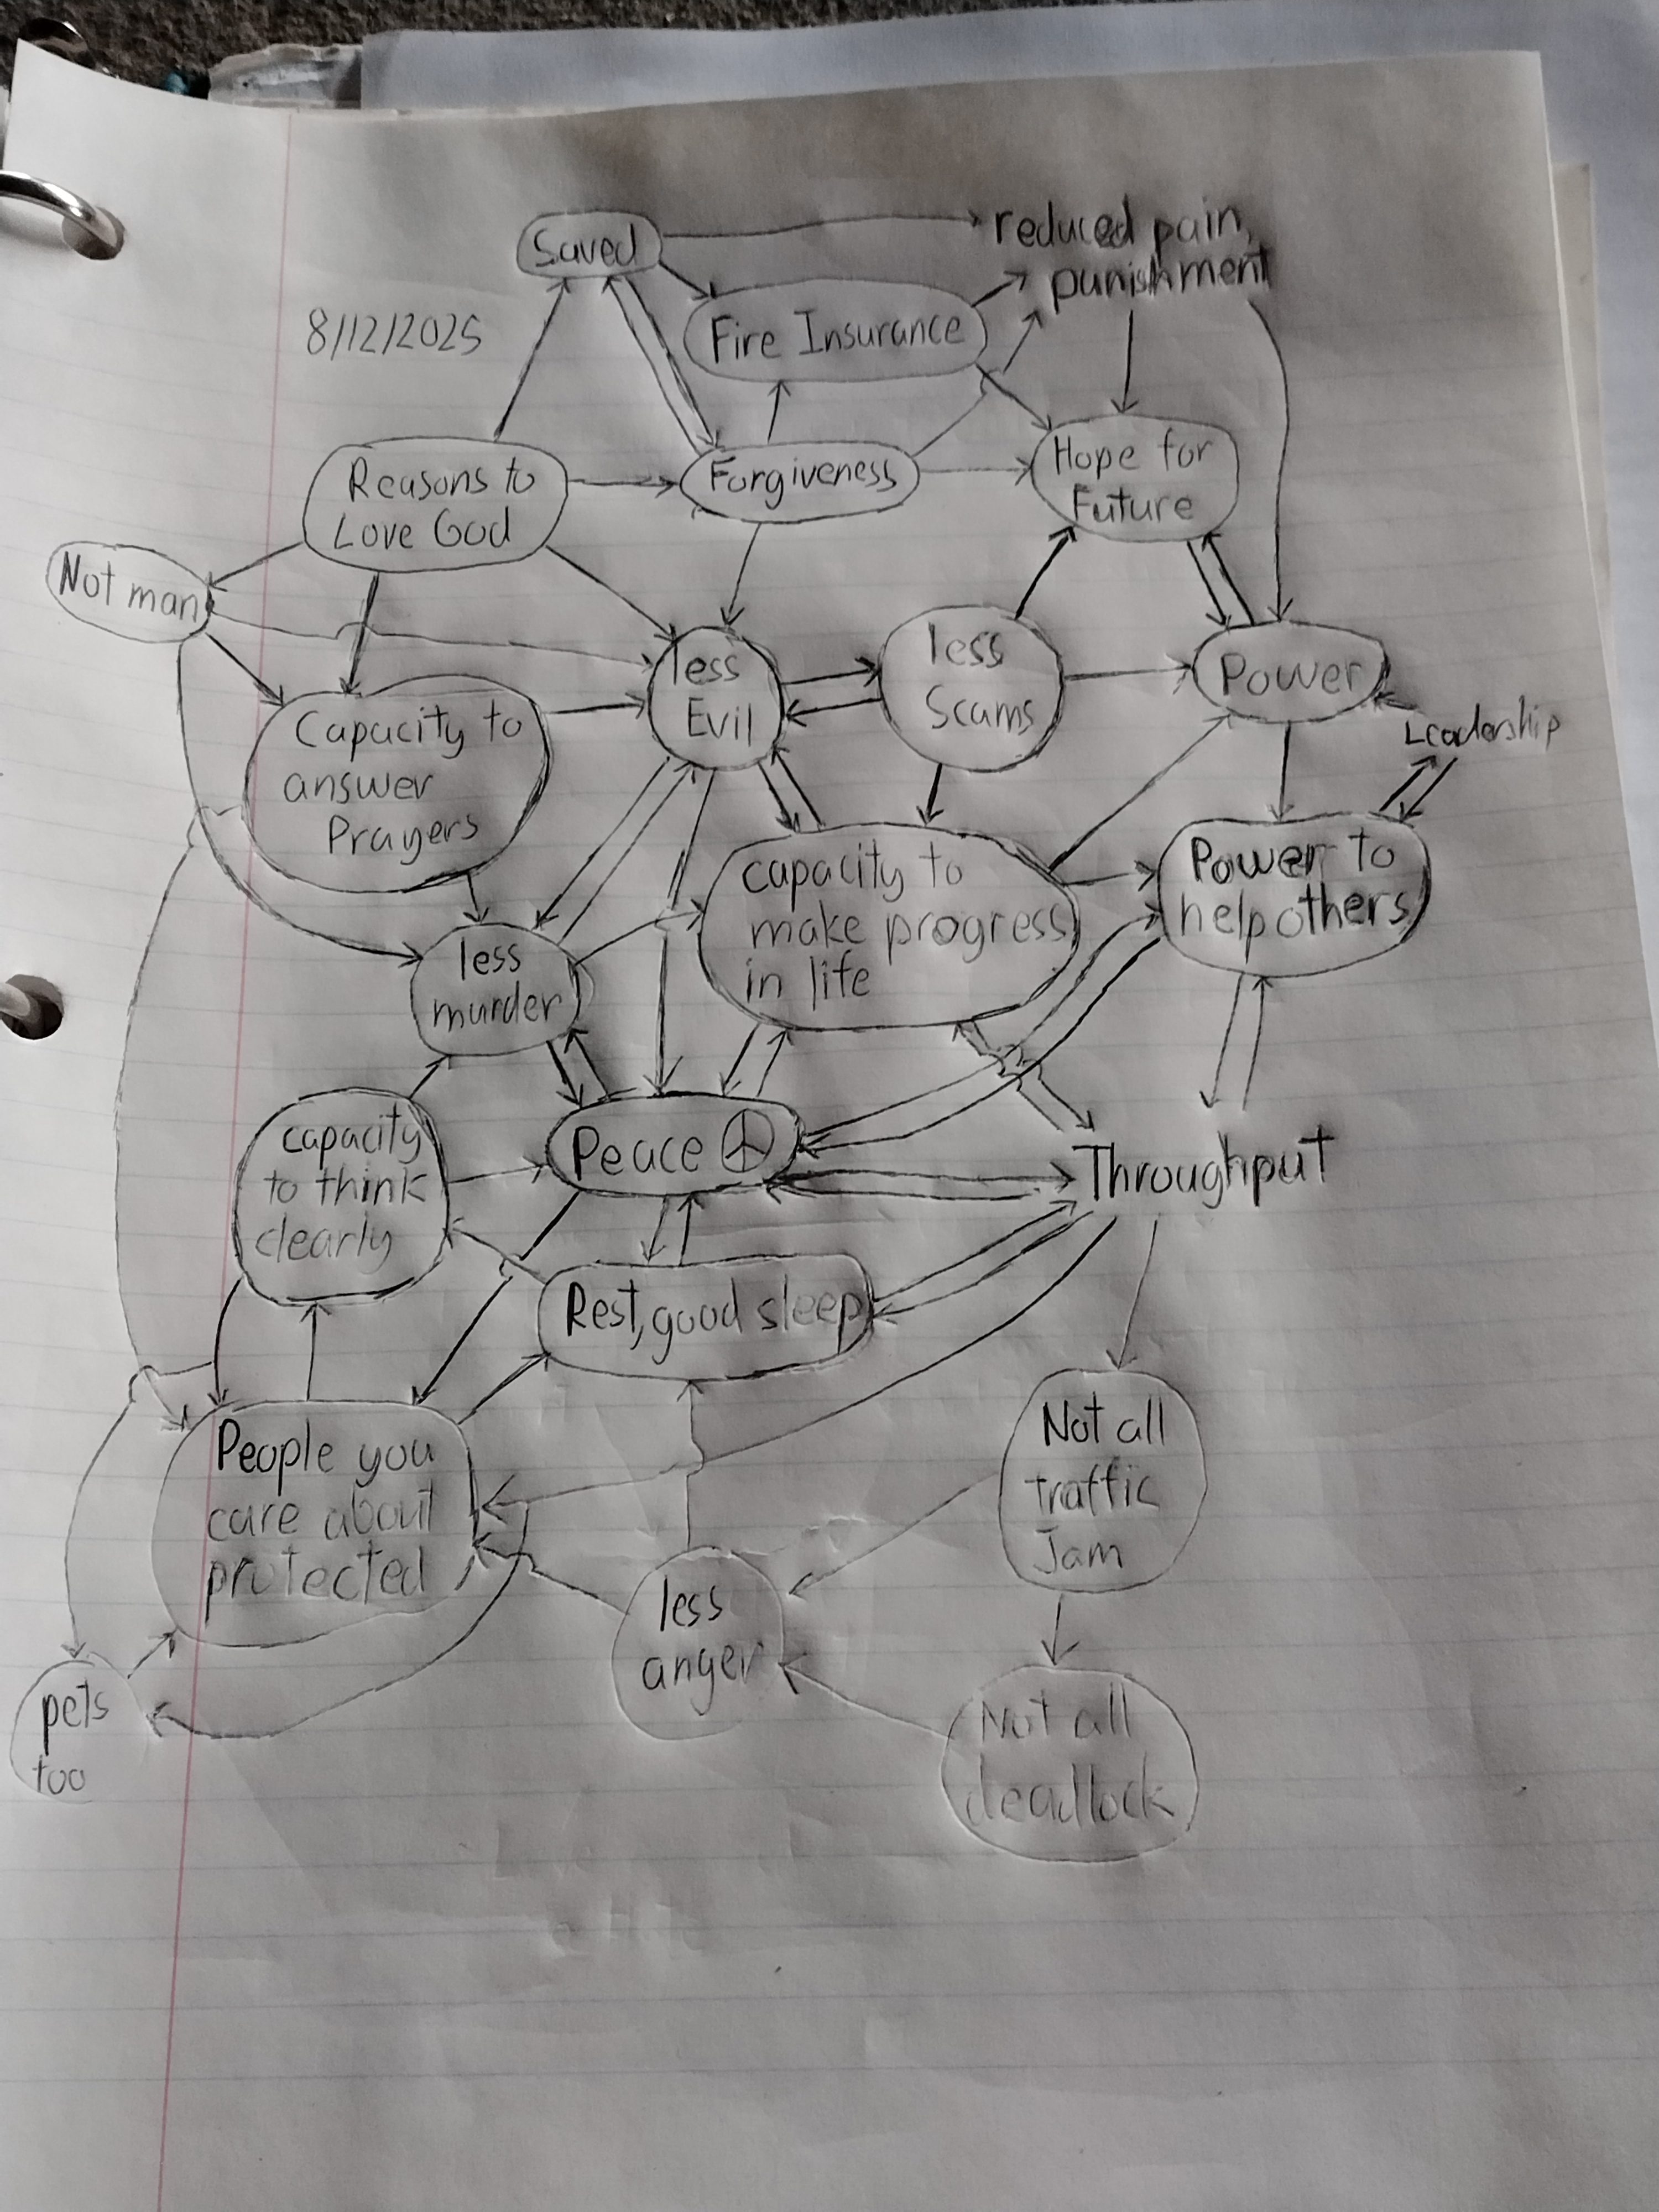 Saved
reduced pain,
punishment
8/12/2025
Fire Insurance
Reasons to
Love God
Forgiveness
Hope for
Future
Not man
less
Evil
less
Scams
Power
Leadership
Capacity to
answer
Prayers
capacity to
make progress
in life
Power to
help others
less
murder
capacity
to think
clearly
Peace
Throughput
Rest, good sleep
People you
care about
protected
Not all
traffic
Jam
less
anger
pets
too
Not all
deadlock